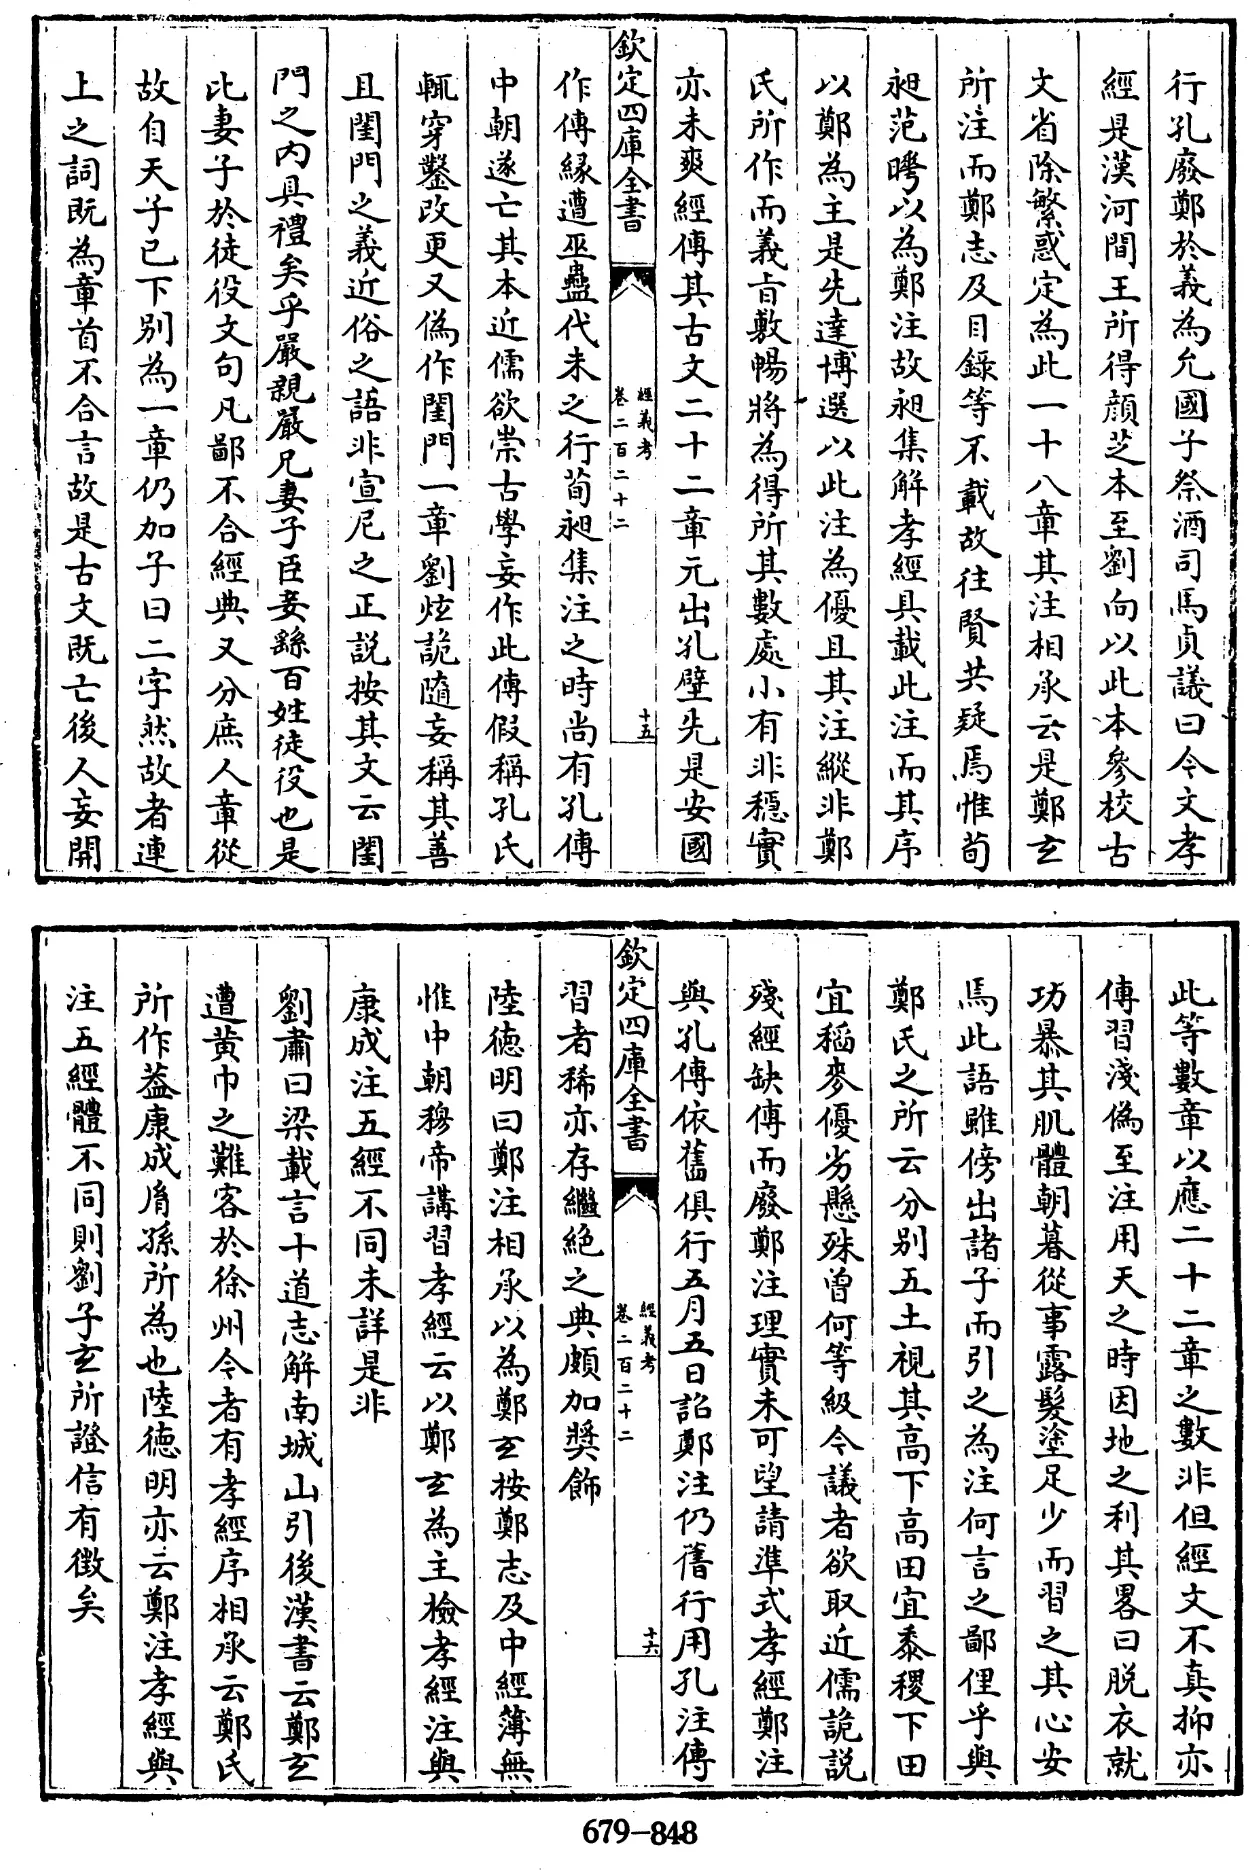 行孔廢鄭於義為允國子祭酒司馬貞議曰今文孝
經是漢河間王所得顔芝本至劉向以此本參校古
文省除繁惑定為此一十八章其注相承云是鄭玄
所注而鄭志及目錄等不載故往賢共疑焉惟荀
昶范曄以為鄭注故昶集解孝經具載此注而其序
以鄭為主是先達博選以此注為優且其注縱非鄭
氏所作而義旨敷暢將為得所其數處小有非穩實
亦未爽經傳其古文二十二章元出孔壁先是安國
欽定四庫全書
經義考
卷二百二十二
十五
作傳緣遭巫蠱代未之行荀昶集注之時尚有孔傳
中朝遂亡其本近儒欲崇古學妄作此傳假稱孔氏
輒穿鑿改更又偽作閨門一章劉炫詭隨妄稱其善
且閨門之義近俗之語非宣尼之正説按其文云閨
門之内具禮矣乎嚴親嚴兄妻子臣妾繇百姓徒役也是
比妻子於徒役文句凡鄙不合經典又分庶人章從
故自天子已下别為一章仍加子曰二字然故者連
上之詞既為章首不合言故是古文既亡後人妄開
此等數章以應二十二章之數非但經文不真抑亦
傳習淺偽至注用天之時因地之利其畧曰脱衣就
功暴其肌體朝暮從事露髮塗足少而習之其心安
焉此語雖傍出諸子而引之為注何言之鄙俚乎與
鄭氏之所云分别五土視其高下高田宜黍稷下田
宜稻麥優劣懸殊曽何等級今議者欲取近儒詭説
殘經缺傳而廢鄭注理實未可望請準式孝經鄭注
與孔傳依舊俱行五月五日詔鄭注仍舊行用孔注傳
欽定四庫全書
經義考
卷二百二十二
十六
習者稀亦存繼絶之典頗加奬飾
陸德明曰鄭注相承以為鄭玄按鄭志及中經簿無
惟中朝穆帝講習孝經云以鄭玄為主檢孝經注與
康成注五經不同未詳是非
劉肅曰梁載言十道志解南城山引後漢書云鄭玄
遭黄巾之難客於徐州今者有孝經序相承云鄭氏
所作葢康成胤孫所為也陸德明亦云鄭注孝經與
注五經體不同則劉子玄所證信有徴矣
679-848